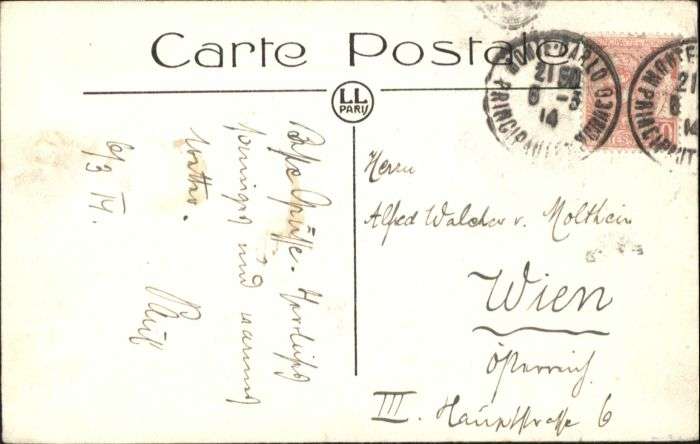 Carte Postale
LL
PARIS
MONTE-CARLO
21
6 -3
14
PRINCIPAUTÉ DE MONACO
Beste Grüße. Herrlichst
sonniges und warmes
Wetter.
6/3 14.
Herrn
Alfred Walcher v. Molthein
Wien
Österreich
III. Hauptstrasse 6